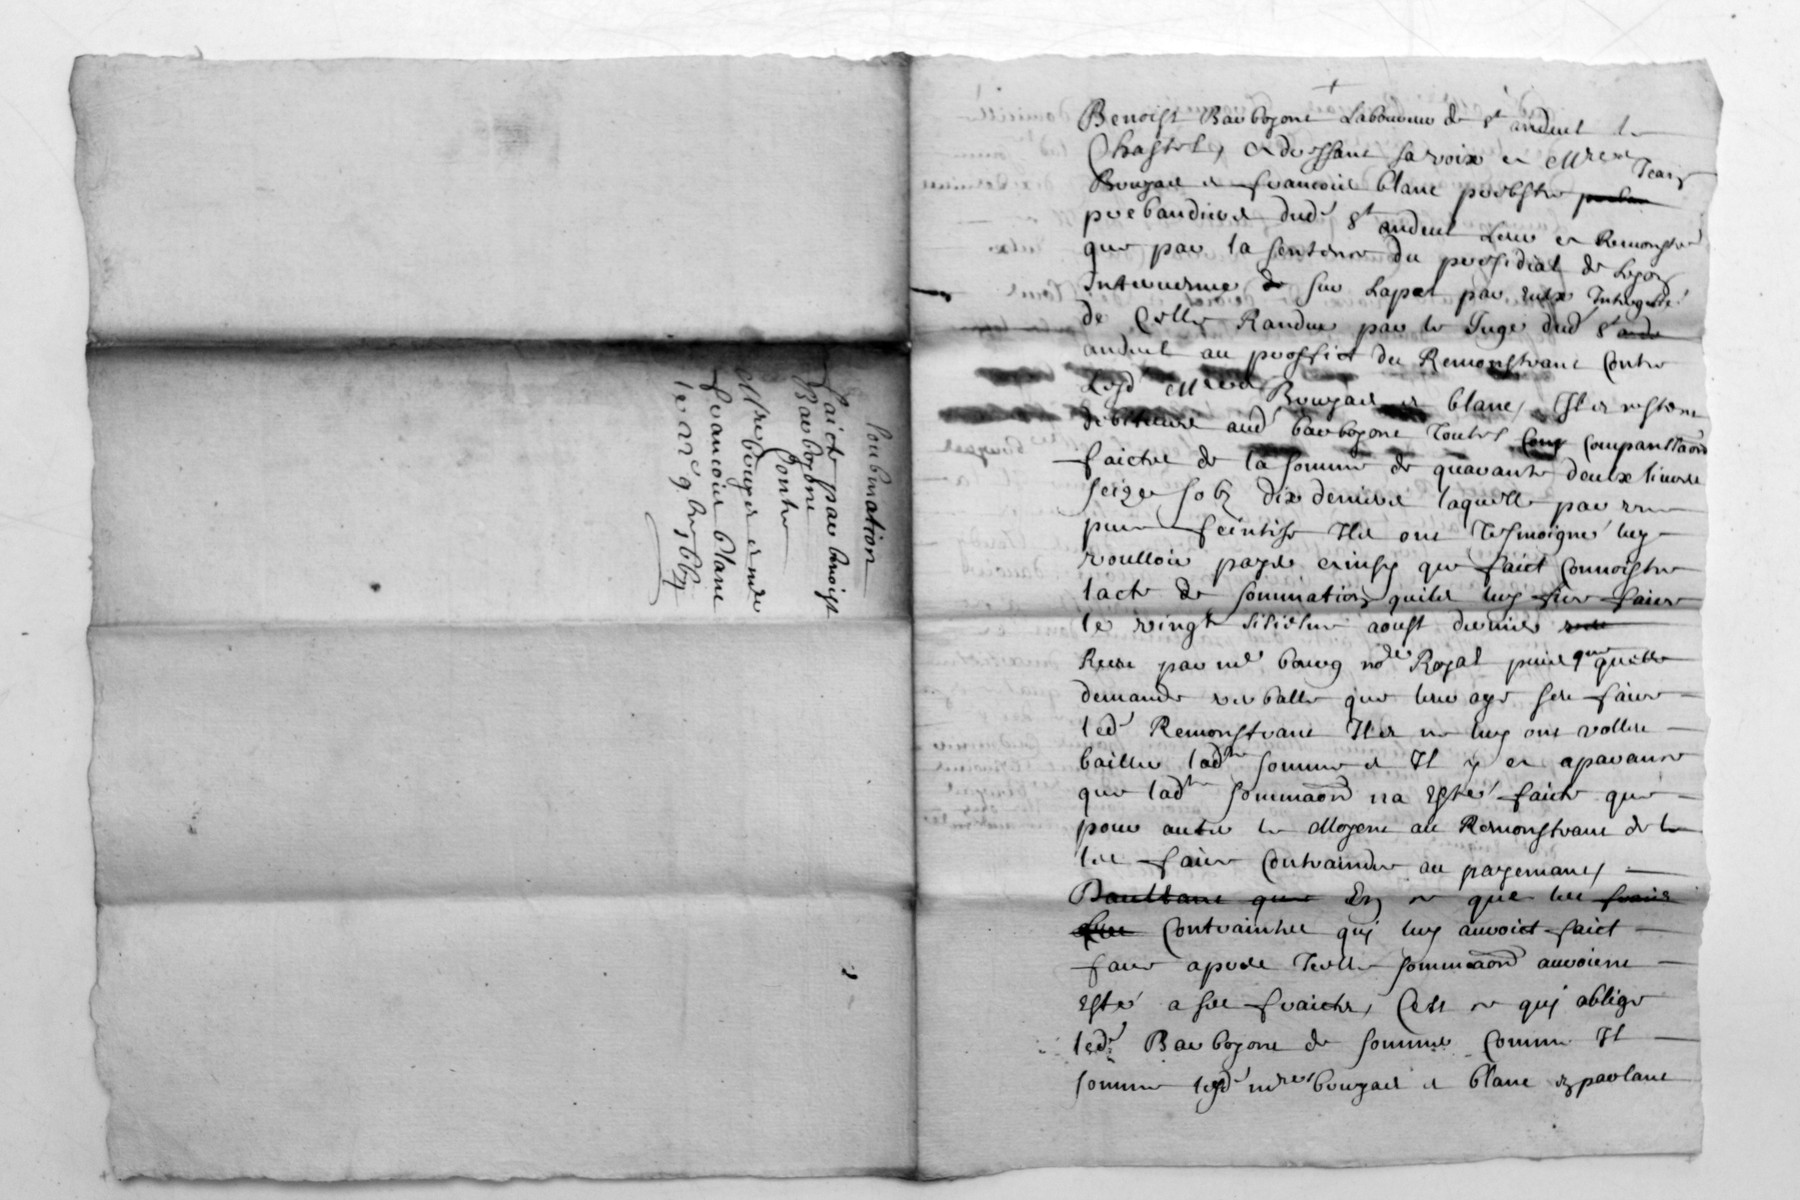 Soubmation
faicte par benoist
Barbozone
Contre
Mre bouzar et mre
francois blanc
le 22e 9bre
Benoist Barbozone Laboureur de St andeul le
Chastel, adressant sa voix a Mres Jean
Bouzard et francois blanc prebstre
prebandiers dud St andeul Leur a Remonstré
que par la sentence du presidial de Lyon
Intervenue sur Lapel par eulx Interjecté
de Celle Randue par le Juge dud St
andeul au proffict du Remonstrant Contre
Lesd Mres Bouzard et blanc, Ils restent
debiteurs aud barbozone Toutes Compansaons
faictes de la somme de quarante deulx livres
seize solz dix deniers laquelle par une
pure feintise Ils ont Tesmoigné luy
voulloir payer ainsy que faict Connoistre
lacte de sommation quils luy fire faire
le vingt siziesme aoust dernier
Receu par me bourg nore Royal puis quelle
demande verballe que leur aye seu faire
led Remonstrant Ils ne luy ont vollu
bailler ladte somme et Il y a aparance
que ladte sommaon na Esté faicte que
pour auter le Moyen au Remonstrant de le
les faire Contraindre au payemant,
En ce que les
Contraintes quy luy auroict faict
faire apres Telle sommaon auroient
Esté a ses fraictz, Cest ce quy oblige
led Barbozone de sommer Comme Il
somme lesd mres bouzard et blanc parlant